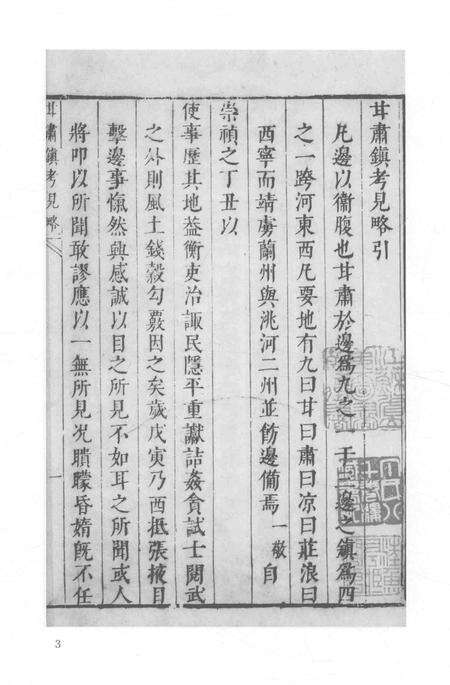 甘肅鎮考見略引
凡邊以衞腹也甘肅於邊爲九之一于西邊之鎮爲四
之一跨河東西凡要地有九曰甘曰肅曰凉曰莊浪曰
西寧而靖虜蘭州與洮河二州並飭邊備焉一敬自
崇禎之丁丑以
使事歷其地葢衡吏治諏民隱平重讞詰姦貪試士閱武
之外則風土錢穀勾覈因之矣歲戊寅乃西抵張掖目
擊邊事愾然興感誠以目之所見不如耳之所聞或人
將叩以所聞敢謬應以一無所見况瞶矇昏媠旣不任
甘肅鎮考見略
一
3